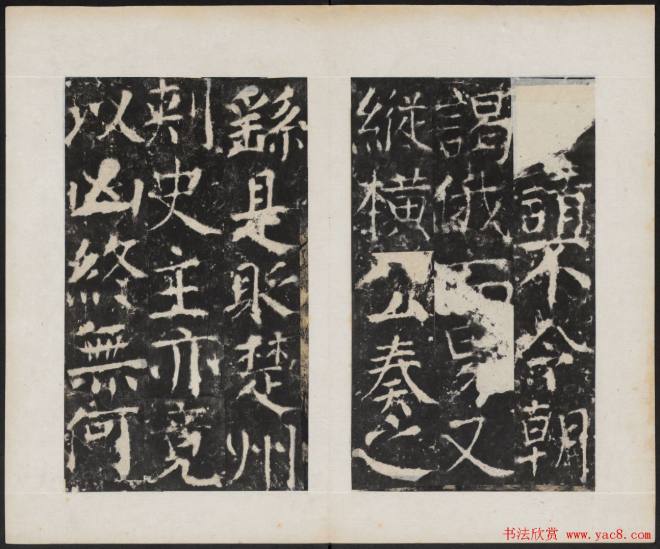 請不令朝
謁俄又
縱橫公奏之
繇是貶楚州
刺史主亦竟
以凶終無何
书法欣赏 www.yac8.com